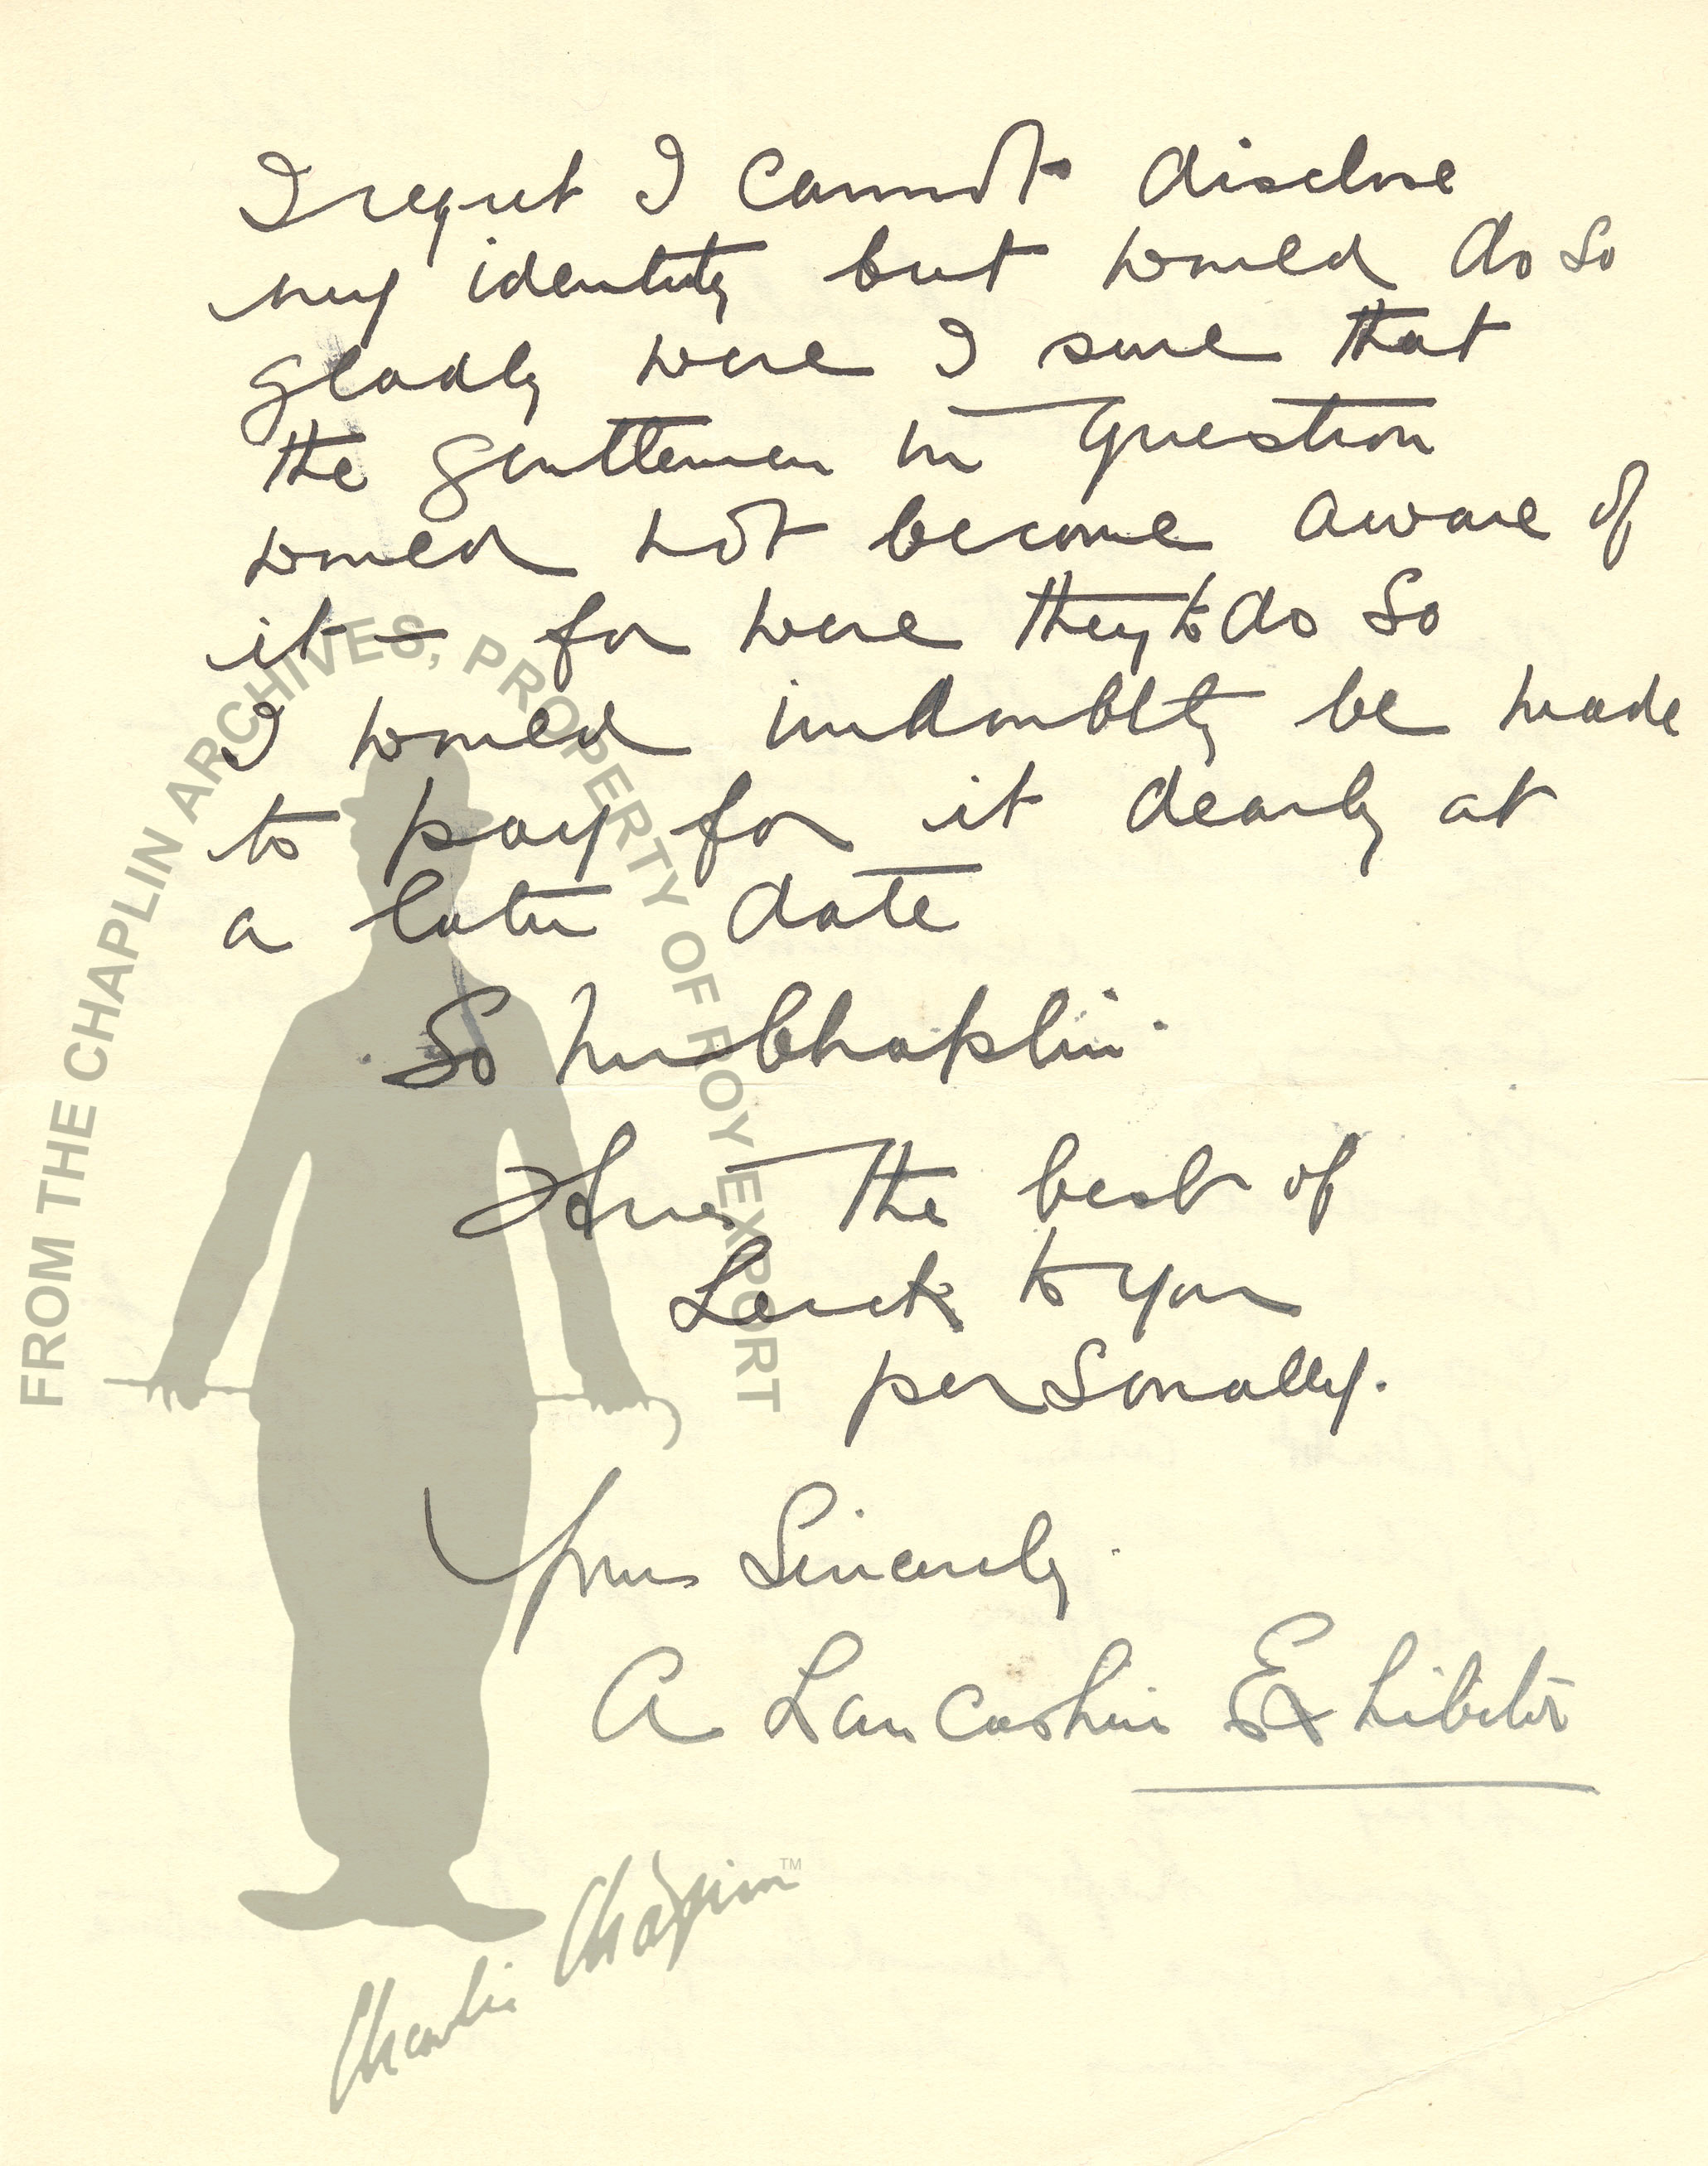 I regret I cannot disclose
my identity but would do so
gladly were I sure that
the gentlemen in question
would not become aware of
it — for were they to do so
I would undoubtly be made
to pay for it dearly at
a later date
So Mr Chaplin
the best of
Luck to you
personally.
Yours Sincerely
A Lancashire Exhibitor
FROM THE CHAPLIN ARCHIVES, PROPERTY OF ROY EXPORT
Charlie Chaplin™